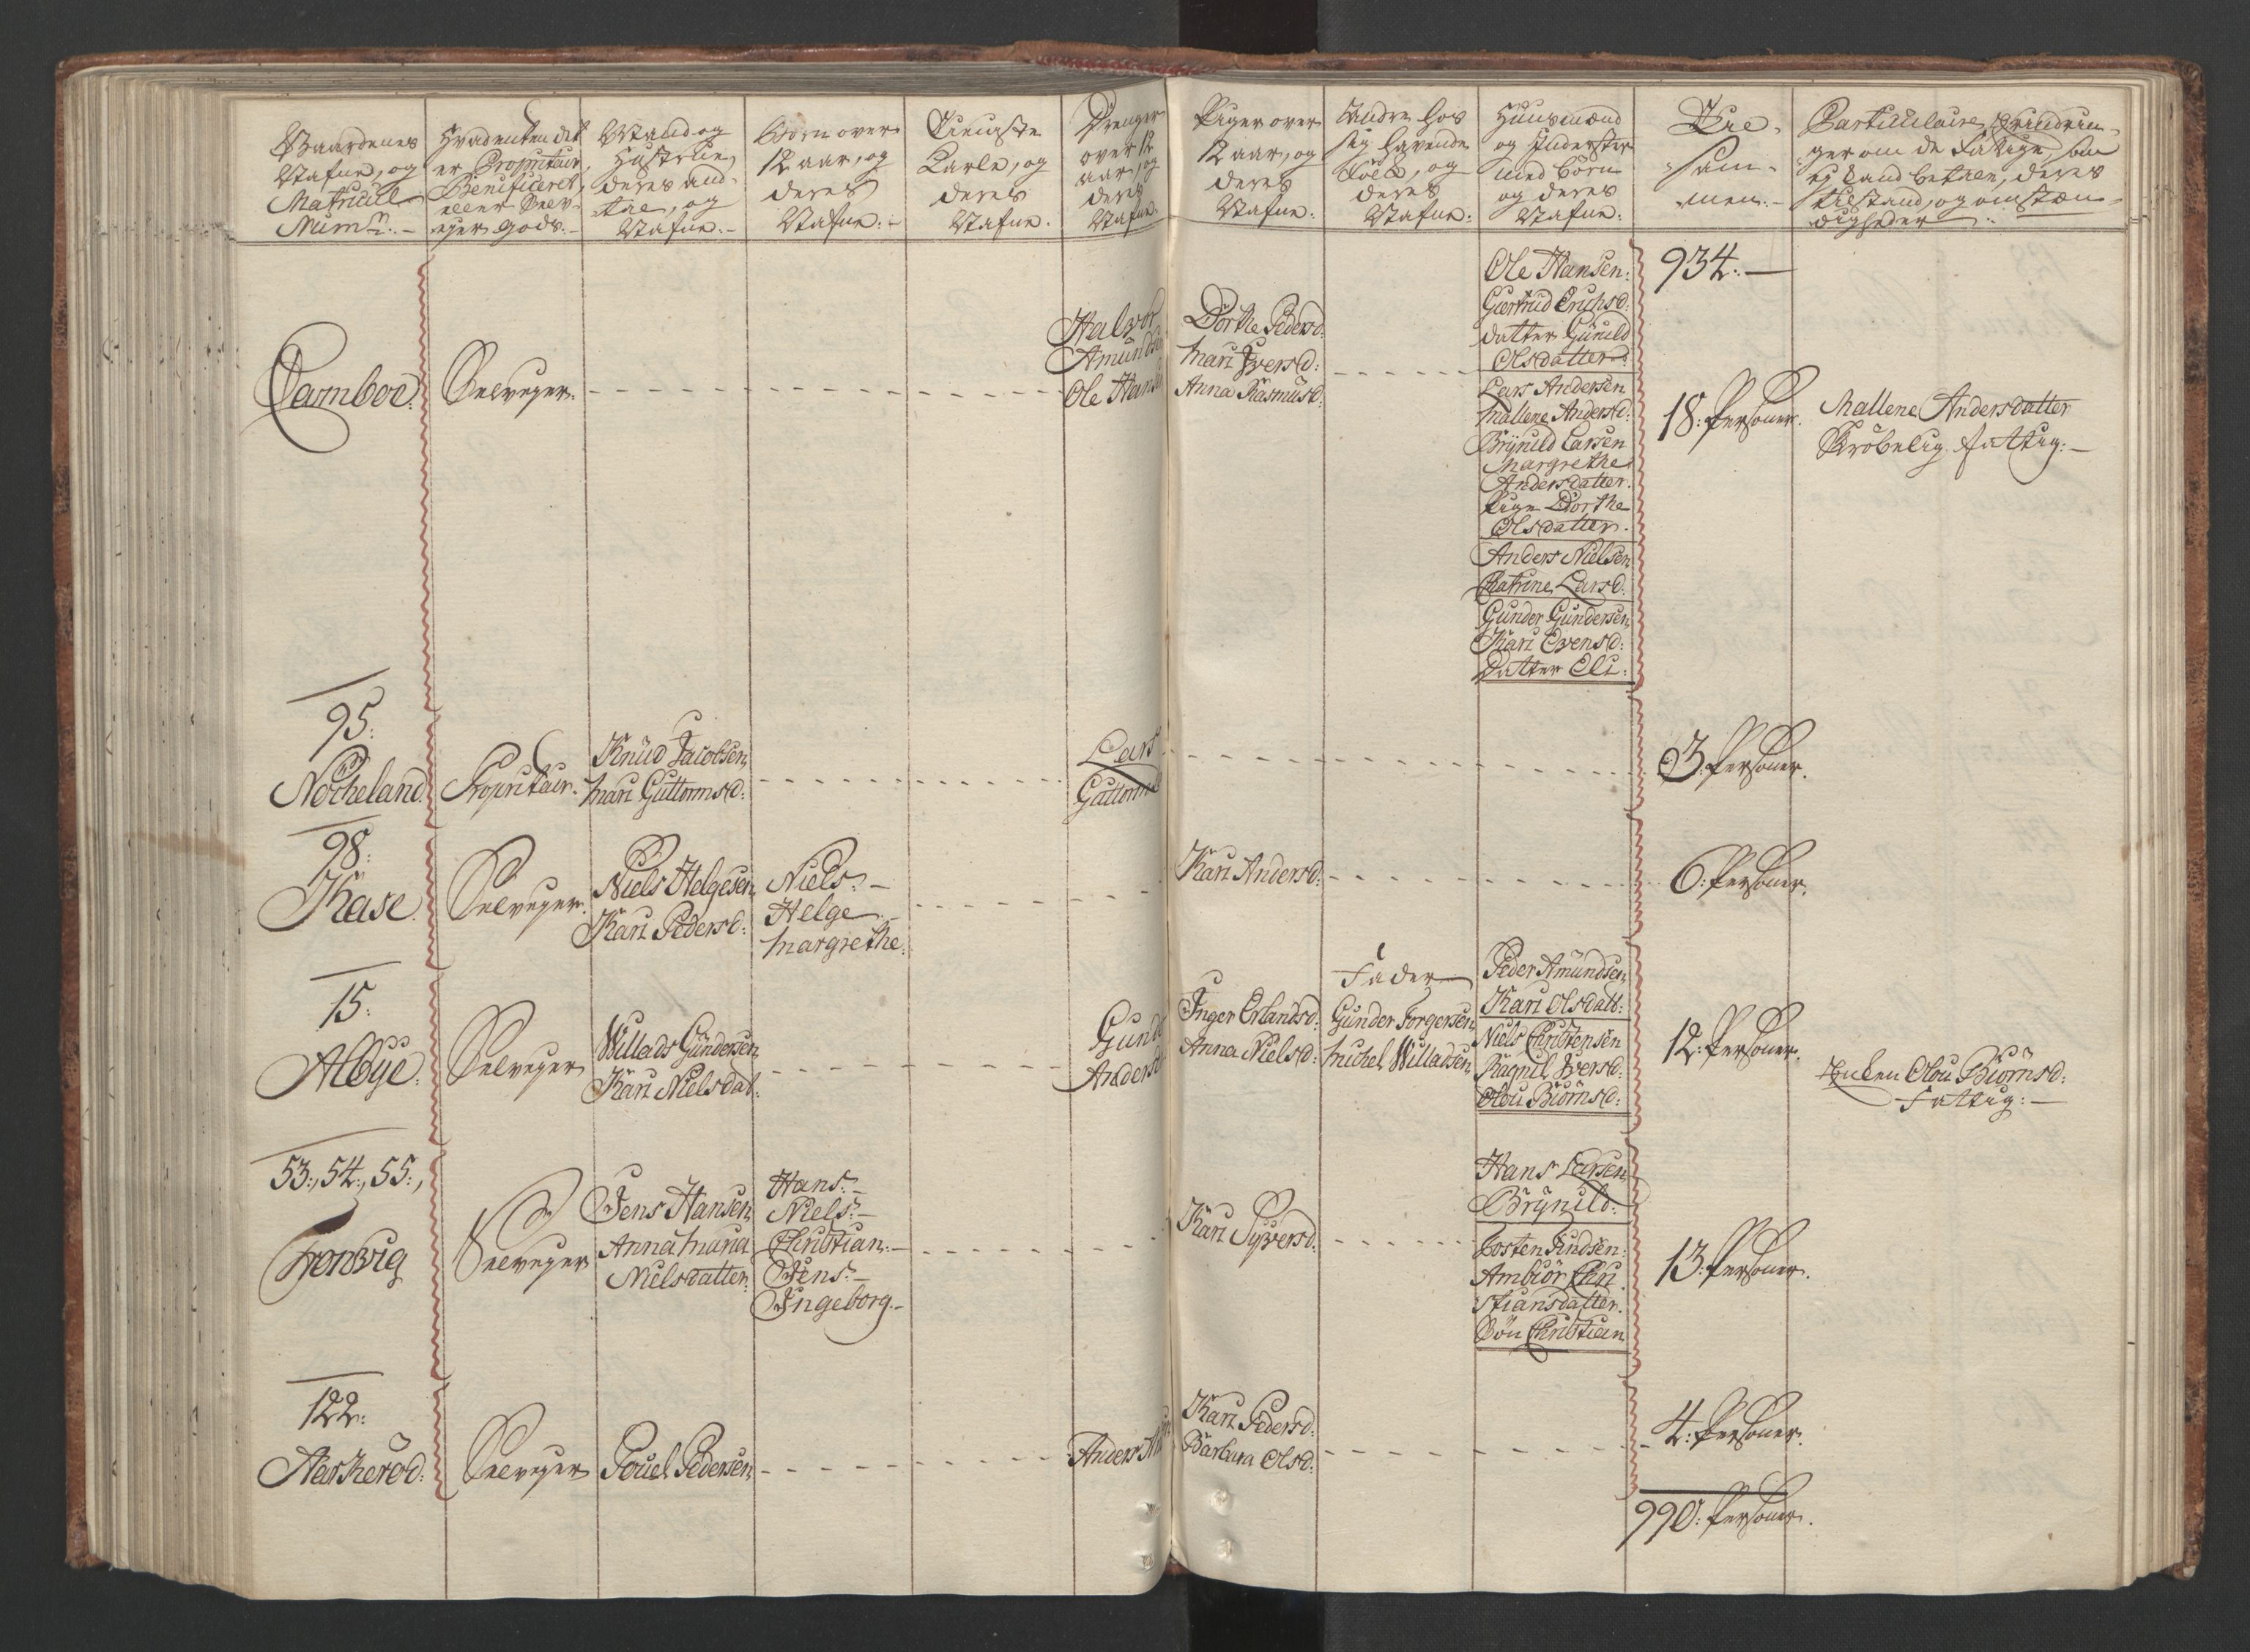 Gaardenes
Nafne, og
Matricul
Num:
Hvadenten det
er Propritair,
Benificeret,
eller Selv-
ejer gods:
Mand og
Hustrue,
deres and-
tal, og
Nafne:
Børn over
12 aar, og
deres
Nafne:
Tieniste
Karle, og
deres
Nafne:
Drenge
over 12
aar, og
deres
Nafne:
Piger over
12 aar, og
deres
Nafne:
Andre hos
sig havende
Folck, og
deres
Nafne:
Huusmænd
og Inderster
med børn
og deres
Nafne:
Til-
sam-
men:
Particulaire Erindrin-
ger om de Fattige, som
ej kand betale, deres
tilstand, og omstæn-
digheder
Ole Hansen:
Giertrud Erichsd:
datter Gunild
Olsdatter:
934:
Tamboe:
Selvejer:
Halvor
Amundsen
Ole Hansen
Dorthe Pedersd:
Mari Iversd:
Anna Rasmusd:
Lars Andersen
Mallene Andersd:
Brynild Larsen
Margrethe
Andersdatter.
Pige Dorthe
Olsdatter.
Anders Nielsen
Cathrine Larsd:
Gunder Gundersen
Kari Evensd:
Datter Eli:
18: Personer.
Mallene Andersdatter
Skrøbelig fattig:
95:
Nocheland
Propritair:
Knud Jacobsen
Mari Guttormsd:
Lars
Guttorms
3: Personer.
98:
Kase.
Selvejer.
Niels Helgesen
Kari Pedersd:
Niels:
Helge
Margrethe:
Kari Andersd:
6: Personer.
15:
Albye:
Selvejer
Willads Gundersen
Kari Nielsdat:
Gunder
Anders
Inger Erlandsd:
Anna Nielsd:
Fader
Gunder Torgersen
Michel Willadsen
Peder Amundsen
Kari Olsdatt:
Niels Christensen
Ragnil Iversd:
Olou Biørnsd:
12: Personer.
Enken Olou Biørnsd:
Fattig:
53:, 54:, 55:,
Tronvig
Selvejer
Jens Hansen
Anna Maria
Nielsdatter:
Hans:
Niels:
Christian:
Jens:
Ingeborg.
Kari Syversd:
Hans Larsen
Brynild:
Tosten Findsen:
Ambiør Chri
stiansdatter.
Søn Christian
13: Personer.
122:
Aascherød:
Selvejer
Pouel Pedersen
Anders
Kari Pedersd:
Barbara Olsd:
4: Personer.
990: Personer.